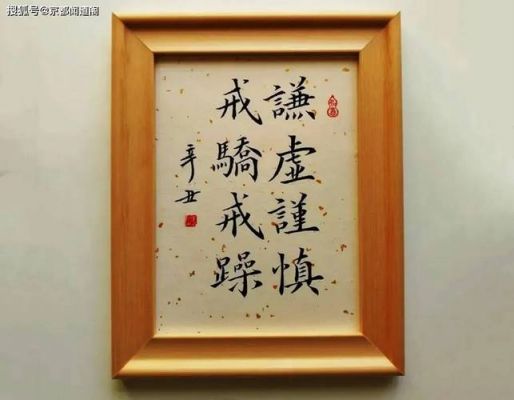 搜狐号@京都闻道阁
謙虛謹慎
戒驕戒躁
辛丑